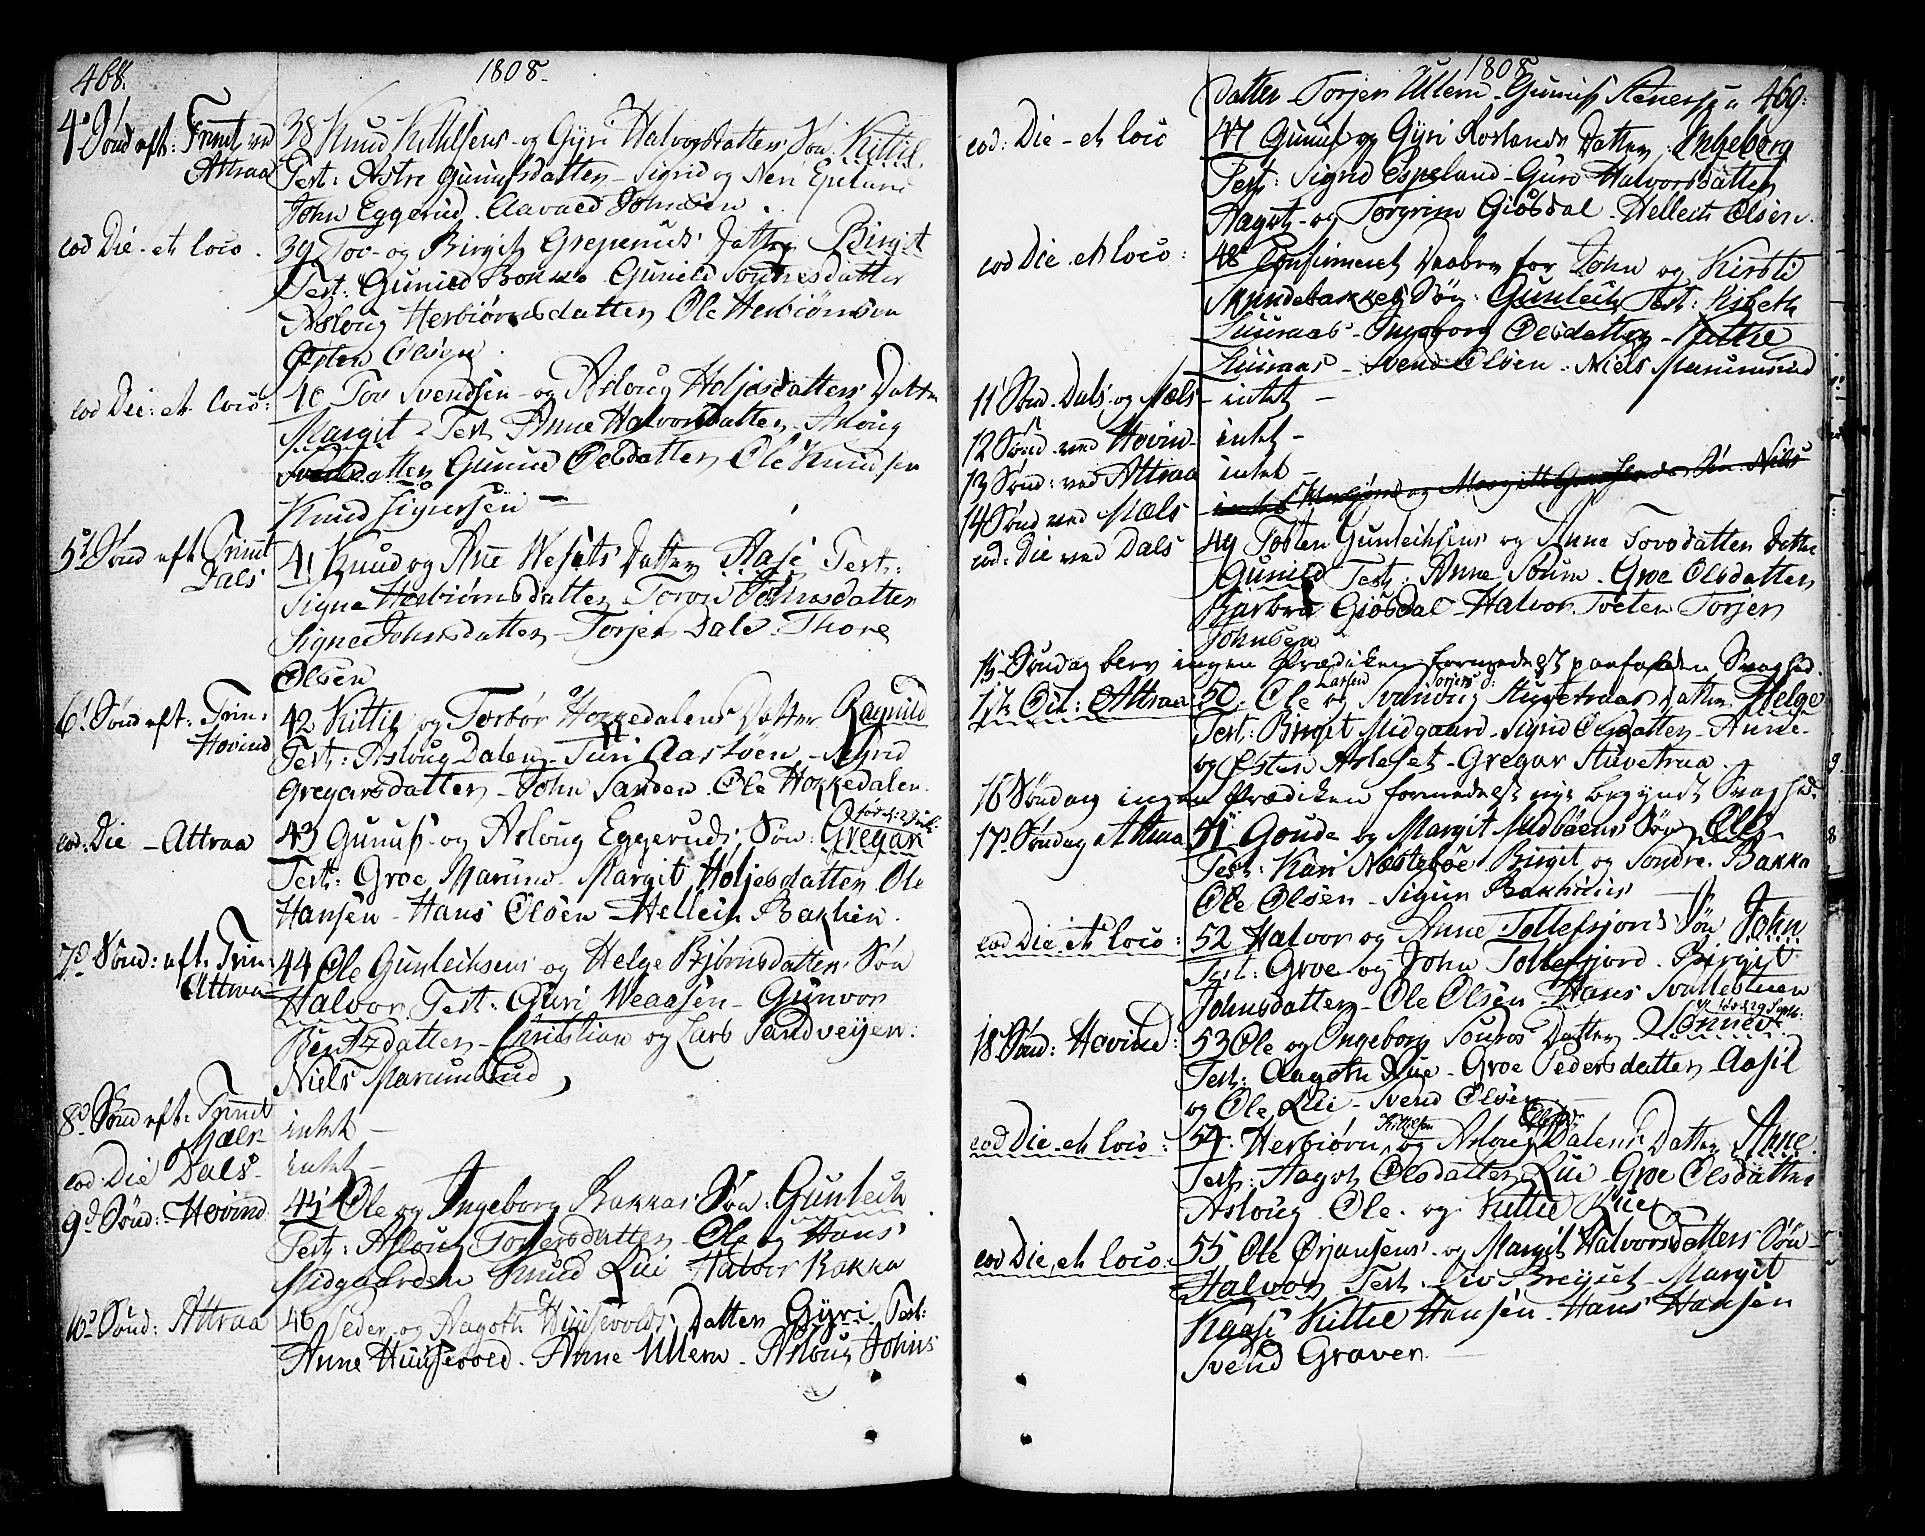 468.
1808.
4d Sønd eft: Trinit ved
Attraa
38 Knud Kittilsens og Gyri Halvorsdatters Søn Kittil.
Test: Astre Gunulfsdatter - Sigrid og Neri Epeland
John Eggerud. Aavald Johnsen.
eod Die - et loco.
39 Tov og Birgit Grepenus' Datter Birgit
Test: Gunild Bokko Gunild Sondresdatter
Asloug Herbiørnsdatter Ole Herbiørnsen
Østen Olsen.
eod Die: et loco:
40 Tov Svendsen og Asloug Holjesdatters Datter
Margit - Test Anne Halvorsdatter - Asloug
Svendsdatter Gunild Olsdatter Ole Knudsen
Knud Sigursen -
5d Sønd eft Trinit
Dals
41 Knud og Ane Wesets Datter Aase Test:
Signe Herbiørnsdatter Toron Johnsdatter
Signe Johnsdatter - Torjer Dale - Thore
Olsen
6d Sønd eft: Trin:
Hovind
42 Kittil og Torbør Hokkedalens Datter Ragnild
Test: Asloug Dalen - Turi Aasbøen - Sigrid
Gregarsdatter - John Sanden. Ole Hokkedalen.
eod: Die - Attraa
43 Gunulf og Asloug Eggeruds Søn: Gregar
Test: Groe Marumd - Margit Holjesdatter Ole
Hansen - Hans Olsen - Hellech Bakken.
7d Sønd: eft: Trin:
Attraa
44 Ole Gunleiksens og Helge Bjørnsdatters Søn
Halvor Test: Guri Weaasen - Gunvor
Bentzdatter - Christian og Lars Sandveyen.
Niels Marumsrud
8d Sønd eft: Trinit
Mæls
intet -
eod Die Dals
intet -
9d Sønd: Hovind
45 Ole og Ingeborg Bakkas Søn: Gunleik
Test: Asloug Toversdatter - Ole og Hans
Midgaarden Knud Lii Halvor Bakka
10d Sønd: Attraa
46 Peder og Aagoth Huusevolds Datter Gyri Test:
Anne Huusevold. Anne Ullern - Asloug Johns
1808
469.
datter - Torjer Ullern - Gunulf Steners
eod: Die - et loco
47 Gunulf og Gyri Roslands Datter Ingeborg
Test: Sigrid Espeland - Guro Halvorsdatter
Aagot - og Torgrim Giøsdal - Hellech Olsen.
eod Die et loco:
48 Confirmeret Daaben for John og Kirsti
Skindebakkes Søn: Gunleik Test: Lisbeth
Luuraas - Ingeborg Olsdatter - Kittil
Luuraas - Svend Olsen - Niels Marumsrud
11 Sønd. Dals og Mæls - intet -
12 Sønd ved Hovin - intet -
13 Sønd: ved Attraa intet -
14 Sønd ved Mæls -
eod: Die ved Dals
49 Tosten Gunleiksens og Anne Tovsdatters Datter
Gunild Test: Anne Soum - Groe Olsdatter
Barbra Giøsdal - Halvor Tveten Torjer
Johnsen
15 Søndag blev ingen Prædiken formedelst paafalden Svaghed.
50. Ole Larsen og Svanaug Torjersd: Stuvetraas Datter Helge
Test: Birgit Midgaard - Sigrid Olsdatter - Anne
og Østen Asleset - Gregar Stuvetraa.
16 Søndag ingen Prædiken formedelst nye begyndt Svaghed.
17d Søndag Attraa
51 Goude og Margit Midbøens Søn Ole -
Test: Kari Næstebøe Birgit og Sondre Bakka
Ole Olsen - Sigur Bakhuus
eod Die et loco:
52 Halvor og Anne Tollefsjords Søn John
Test: Groe og John Tollefsjord. Birgit
Johnsdatter - Ole Olsen - Hans Svallestuen
18 Sønd: Hovind:
53 Ole og Ingeborg Datter Sønnev
Test: Aagoth Rue - Groe Pedersdatter - Aasil
og Ole Lii - Svend Olsen
eod Die et loco:
54. Herbiørn Kittilsen og Asloug Dalens Datter Anne
Test: Aagot Olsdatter Lii - Groe Olsdatter
Asloug Ole. og Kittil Rue
eod Die et loco:
55 Ole Ørjansens og Margit Halvorsdatters Søn
Halvor Test. Liv Breyset - Margit
Kaase Kittil Hansen. Hans Hansen
Svend Graver